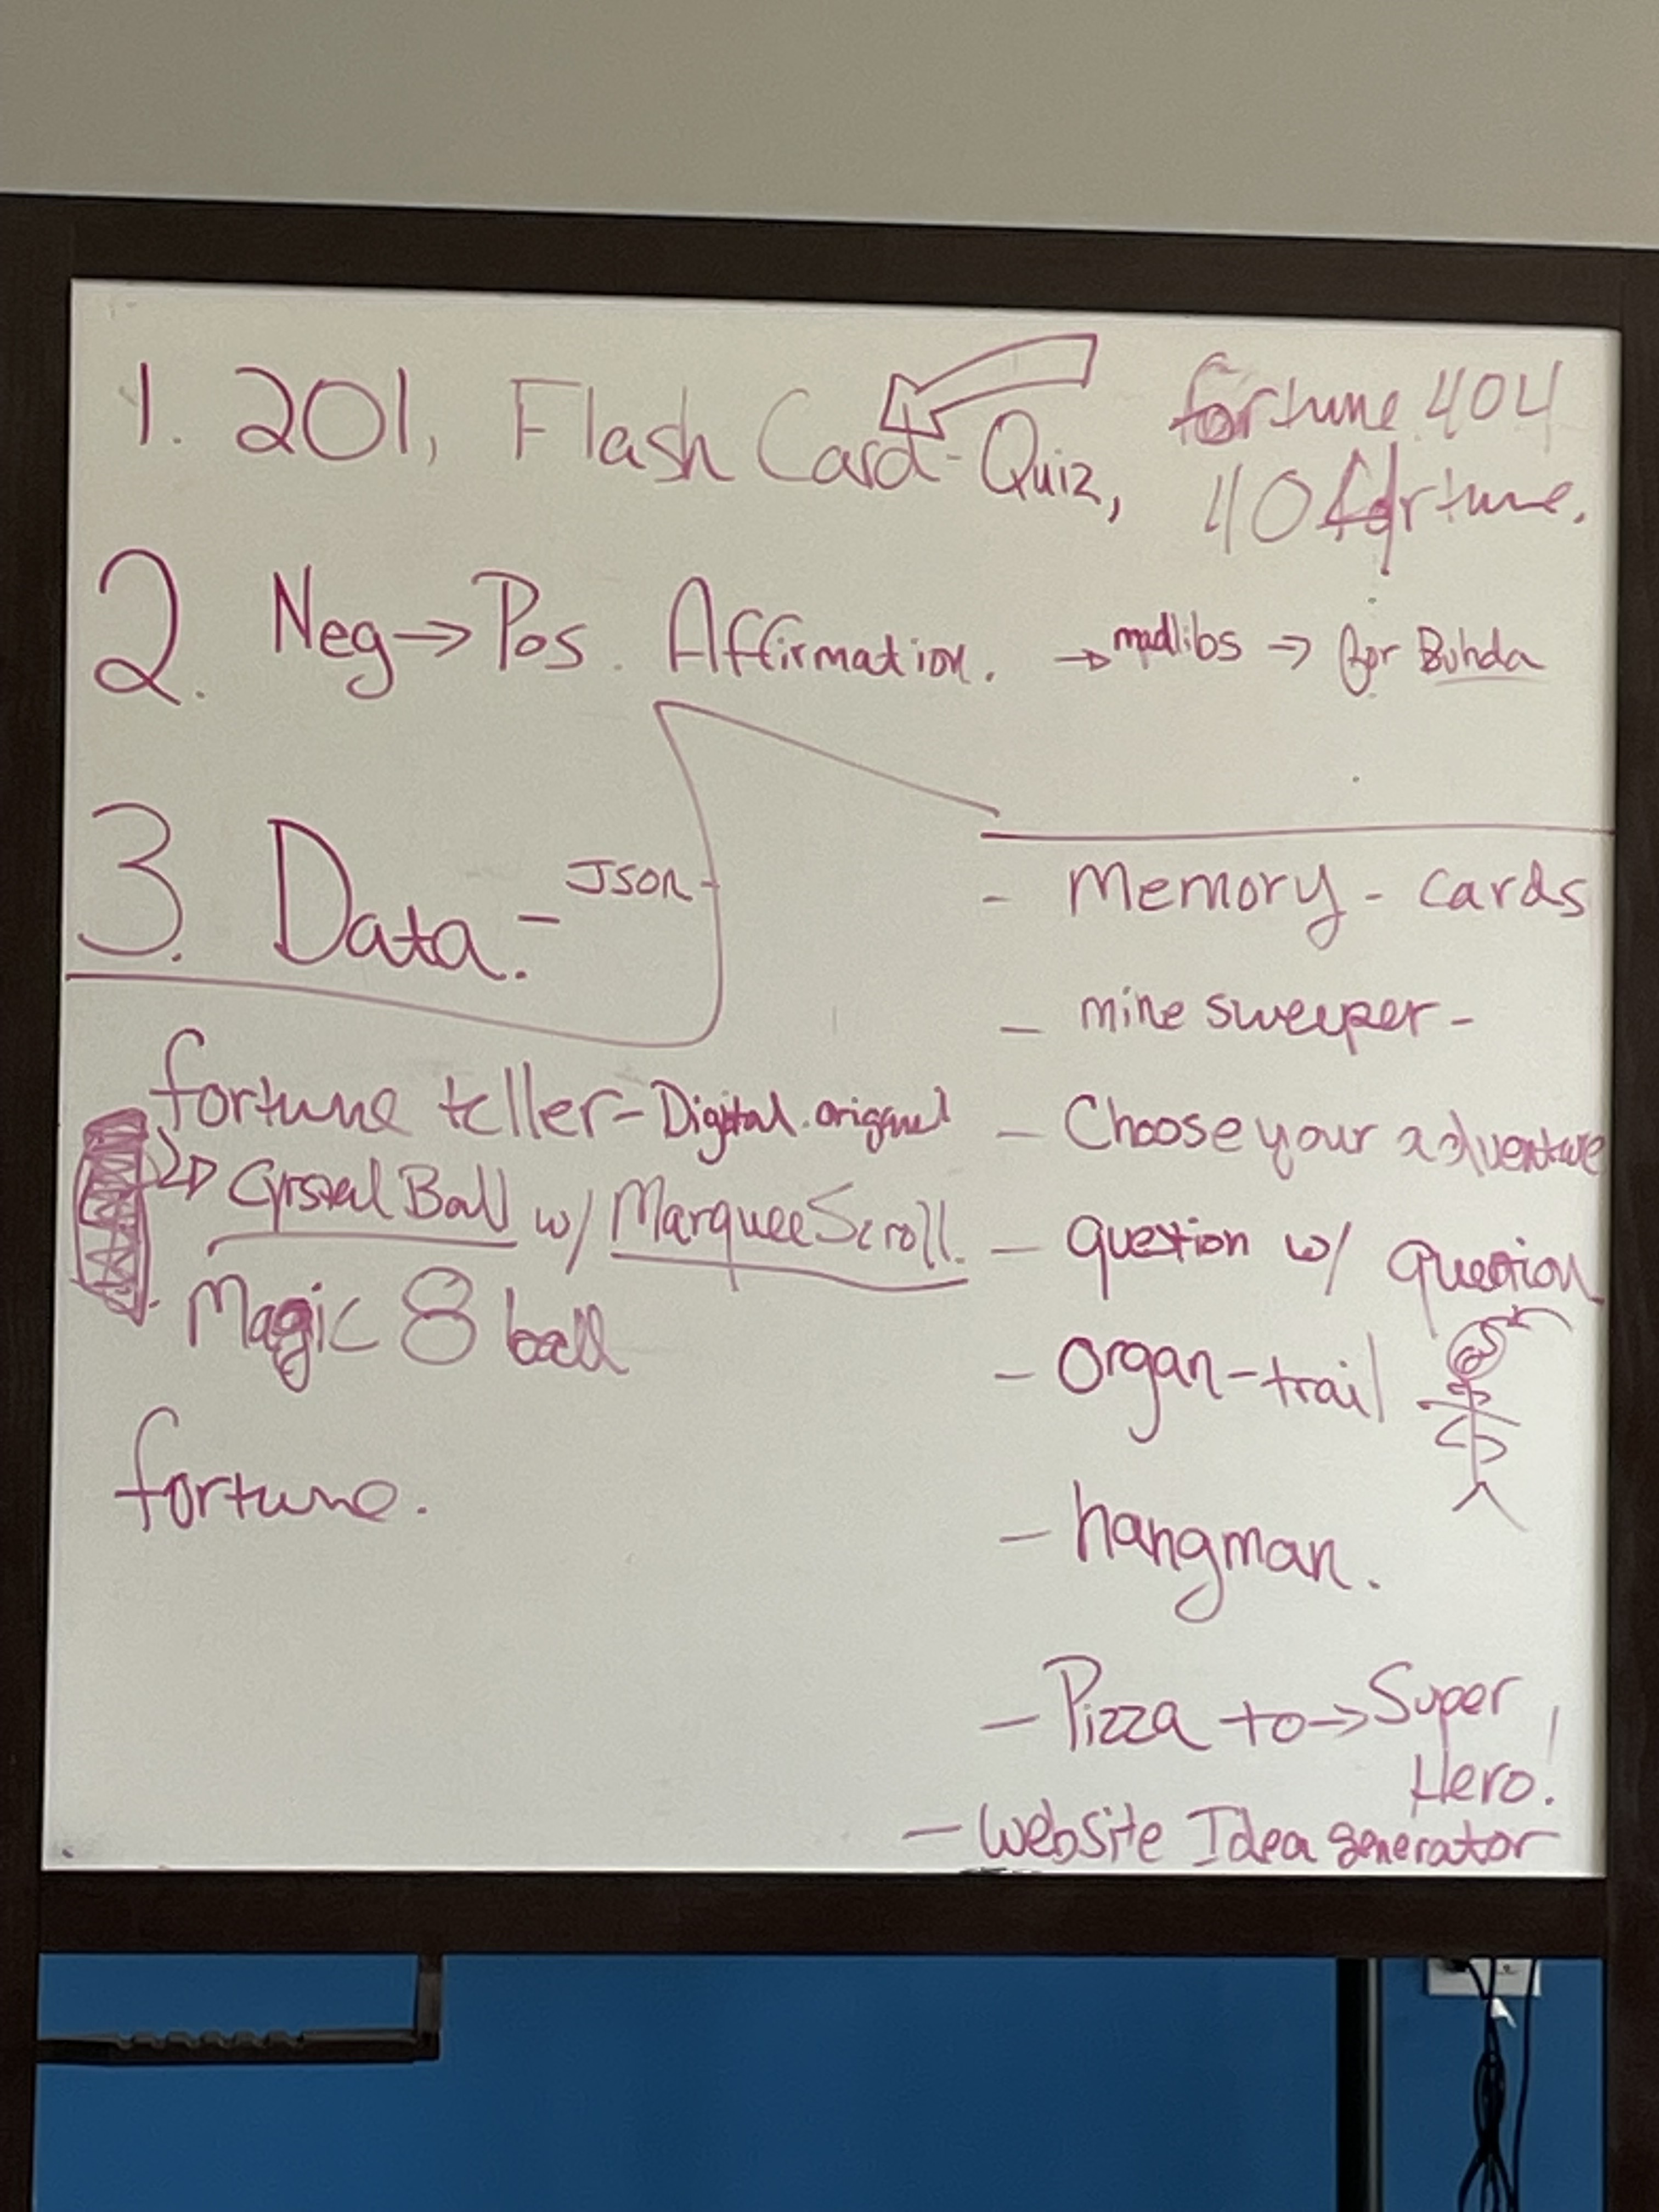 1. 201, Flash Card-Quiz,
fortune 404
40fortune.
2. Neg → Pos. Affirmation. → madlibs → for Buhda
3. Data. - Json
fortune teller - Digital.
→ Crystal Ball w/ Marquee Scroll.
Magic 8 ball
fortune.
- Memory - cards
- mine sweeper -
- Choose your adventure
- question w/ question
- organ-trail
- hangman.
- Pizza to → Super
Hero!
- Website Idea generator